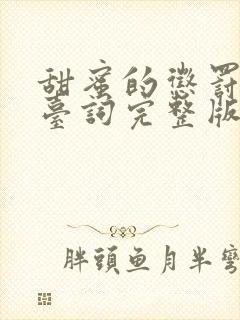 甜蜜的懲罰
臺詞完整版
胖頭魚月半彎